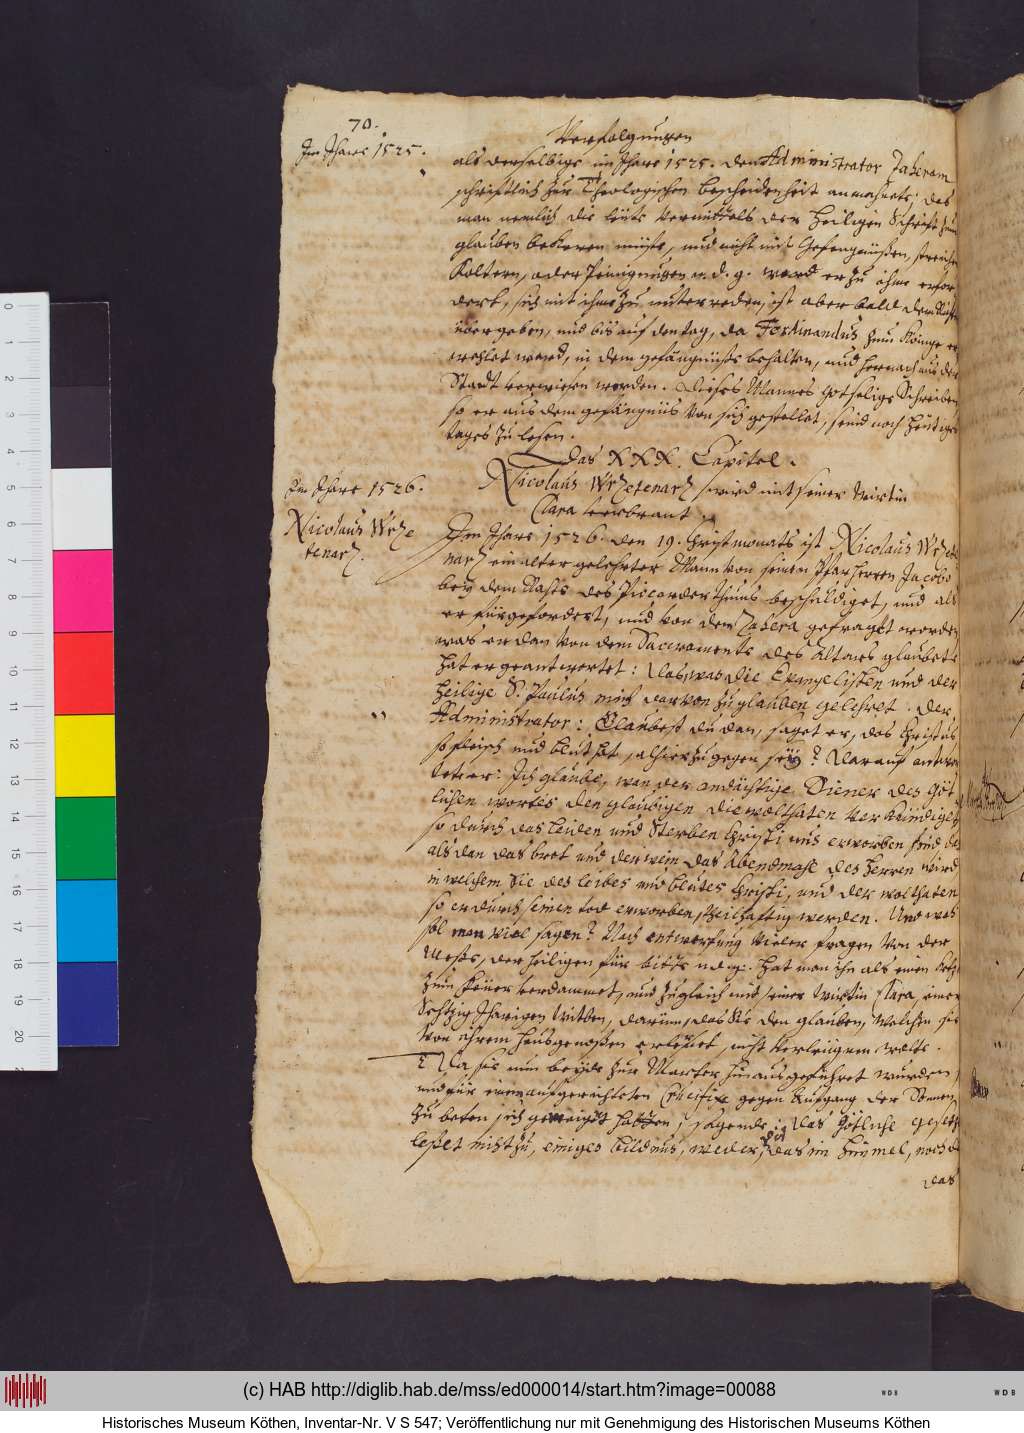 70.
Verfolgungen
Im Jhare 1525.
als derselbige im Jhare 1525. den Administrator Zaheram
schriftlich zur Theologischen bescheidenheit anmahnete; das
man nemlich die leute vermittels der heiligen Schrift zum
glauben bekeren müste, und nicht mit Gefengnüßen, streichen
Foltern, oder Peinigungen u. d. g. ward er zu ihme erfor
dert, sich mit ihme zu unterreden, ist aber bald dem
übergeben, und bis auf den tag, da Ferdinandus zum Könige er
wehlet ward, in dem gefängnüße behalten, und hernach aus der
Stadt verwiesen worden. Dieses Mannes gotselige Schreiben
so er aus dem gefängnüs von sich gestellet, seind noch heütiges
tages zu lesen.
Das XXX. Capitel.
Im Jhare 1526.
Nicolaus Wrzetenarz wird mit seiner wirtin
Clara verbrant.
Nicolaus Wrze
tenarz.
Im Jhare 1526. den 19. Christmonats ist Nicolaus Wrzete
narz ein alter gelehrter Mann von seinem Pfarherren Jacobo
bey dem Rahte des Piccarderthums beschuldiget, und als
er fürgefordert, und von dem Zahera gefraget worden
was er dan von dem Sacramente des Altares glaubete
hat er geantwortet: Das, was die Evangelisten und der
heilige S. Paulus mich darvon zu glauben gelehret. Der
Administrator: Glaubest du dan, saget er, das Christus
so fleisch und blut hat, alhier zugegen sey? Darauf antwor
tet er: Ich glaube, wan der andächtige Diener des Göt
lichen wortes den glaubigen die wolthaten verkündiget
so durch das leiden und sterben Christi uns erworben sind das
alsdan das brot und der wein das Abendmahl des Herren wird
in welchem Sie des leibes und blutes Christi, und der wolthaten
so er durch seinen tod erworben, theilhaftig werden. Und was
sol man viel sagen? Nach entwortung vieler fragen von der
Messe, der heiligen für bitte u. d. g. hat man ihn als einen Ketzer
zum feüer verdammet, und zugleich mit seiner wirtin Clara, einer
Sechtzig Jharigen Witben, darüm, das Sie den glauben, welchen sie
von ihrem hausgenoßen erlernet, nicht verleügnen wolte.
Da sie nun beyde zur Marter hinaus geführet wurden,
und für einem aufgerichteten Crucifixe gegen Aufgang der Sonnen
zu beten sich geweigert hatten, sagende: Das Götliche gesetz
leßet nicht zu, einiges bildnüs, weder des, das im himmel, noch des
das
(c) HAB http://diglib.hab.de/mss/ed000014/start.htm?image=00088
Historisches Museum Köthen, Inventar-Nr. V S 547; Veröffentlichung nur mit Genehmigung des Historischen Museums Köthen